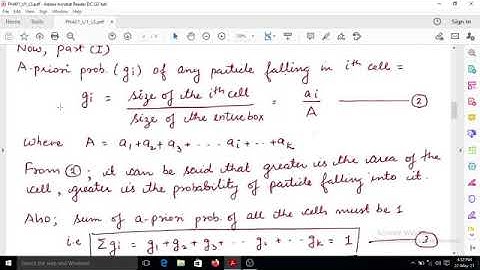 Ph421_U1_L5.pdf - Adobe Acrobat Reader DC (32-bit)
File Edit View Sign Window Help
Home Tools
Sign In
Now, Part (I)
A-priori prob. (gi) of any particle falling in ith cell =
gi = size of the ith cell / size of the entire box = ai / A — ②
where A = a1 + a2 + a3 + ... ai + .. + ak
From ②; it can be said that greater is the area of the
cell, greater is the probability of particle falling into it.
Also; sum of a-priori prob. of all the cells must be 1
i.e Σgi = g1 + g2 + g3 + ... gi + ... gk = 1 — ③